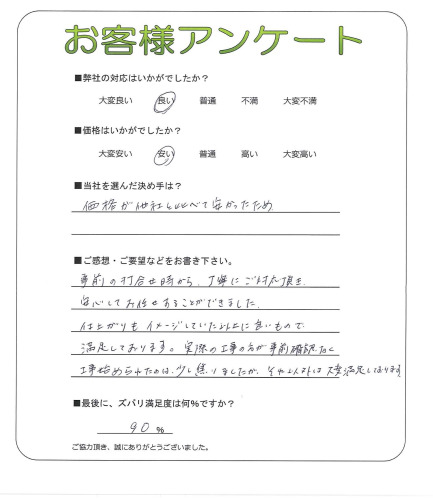 お客様アンケート
■弊社の対応はいかがでしたか？
大変良い 良い 普通 不満 大変不満
■価格はいかがでしたか？
大変安い 安い 普通 高い 大変高い
■当社を選んだ決め手は？
価格が他社と比べて安かったため
■ご感想・ご要望などをお書き下さい。
事前の打合せ時から、丁寧にご対応頂き
安心してお任せすることができました。
仕上がりもイメージしていた以上に良いもので
満足しております。実際の工事の方が事前確認なく
工事始められたのは、少し焦りましたが、それ以外は大変満足しております
■最後に、ズバリ満足度は何％ですか？
90 ％
ご協力頂き、誠にありがとうございました。